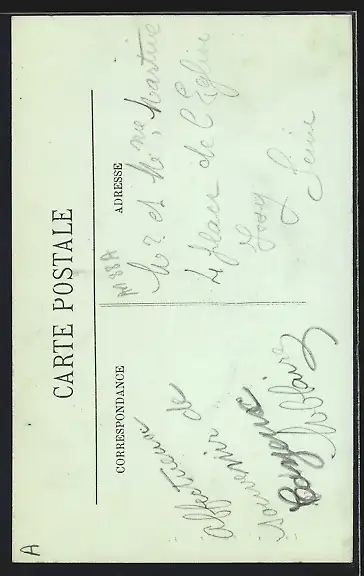 A
CARTE POSTALE
CORRESPONDANCE
ADRESSE
Affectueux
souvenir de
Eugène
M. et Mme Martine
4 place de l'Église
Issy
Seine